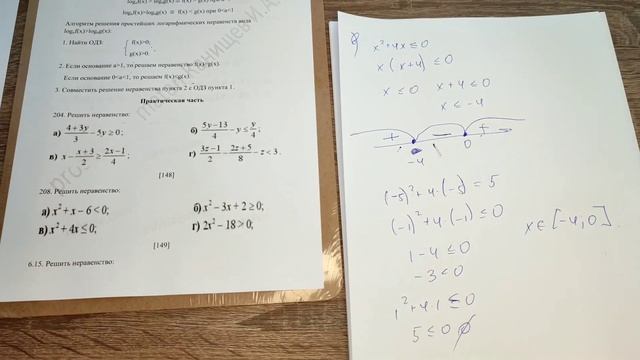 logₐf(x) > logₐg(x) ⇔ f(x) > g(x) при a>1
logₐf(x)>logₐg(x) ⇔ f(x) < g(x) при 0<a<1
Алгоритм решения простейших логарифмических неравенств вида
logₐf(x)>logₐg(x):
1. Найти ОДЗ: { f(x)>0,
g(x)>0.
2. Если основание a>1, то решаем неравенство f(x)>g(x).
Если основание 0<a<1, то решаем f(x)<g(x).
3. Совместить решение неравенства пункта 2 с ОДЗ пункта 1.
Практическая часть
204. Решить неравенство:
а) (4+3y)/3 − 5y ≥ 0; б) (5y−13)/4 − y ≤ y/4;
в) x − (x+3)/2 ≥ (2x−1)/4; г) (3z−1)/2 − (2z+5)/8 − z < 3.
[148]
208. Решить неравенство:
а) x² + x − 6 < 0; б) x² − 3x + 2 ≥ 0;
в) x² + 4x ≤ 0; г) 2x² − 18 > 0;
[149]
6.15. Решить неравенство:
x²+4x ≤ 0
x(x+4) ≤ 0
x ≤ 0 x+4 ≤ 0
x < -4
+ − +
-4 0
(-5)²+4·(-5) = 5
(-1)²+4·(-1) ≤ 0
1-4 ≤ 0
-3 < 0
1²+4·1 ≤ 0
5 ≤ 0 ∅
x ∈ [-4,0]